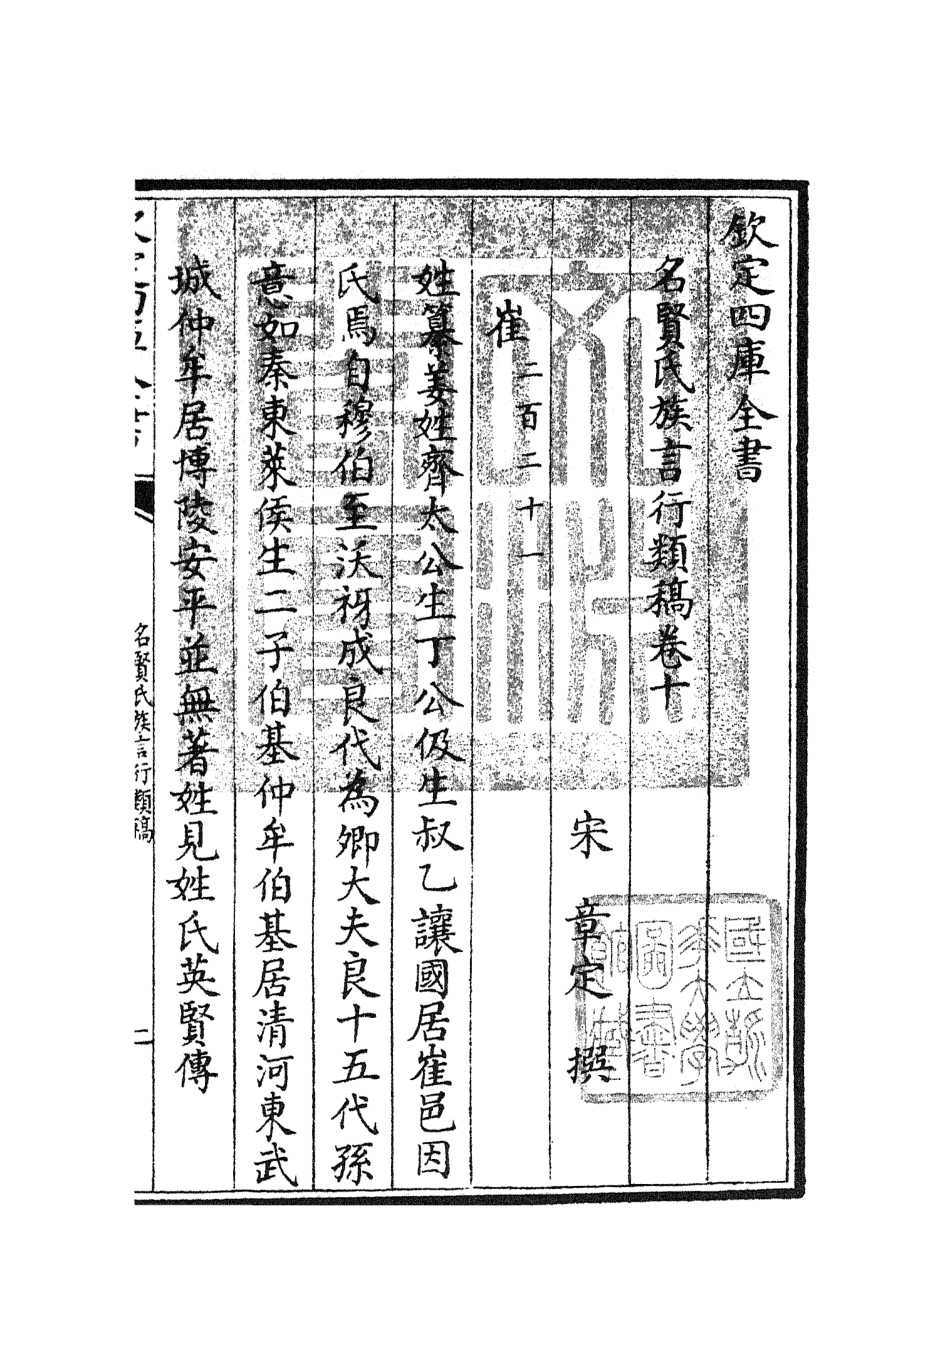 欽定四庫全書
名賢氏族言行類稿卷十
宋 章定 撰
崔二百二十一
姓纂姜姓齊太公生丁公伋生叔乙讓國居崔邑因
氏焉自穆伯至沃衬成良代為卿大夫良十五代孫
意如秦東萊侯生二子伯基仲牟伯基居清河東武
城仲牟居博陵安平並無著姓見姓氏英賢傳
名賢氏族言行類稿
國立浙
江大學
圖書
館藏